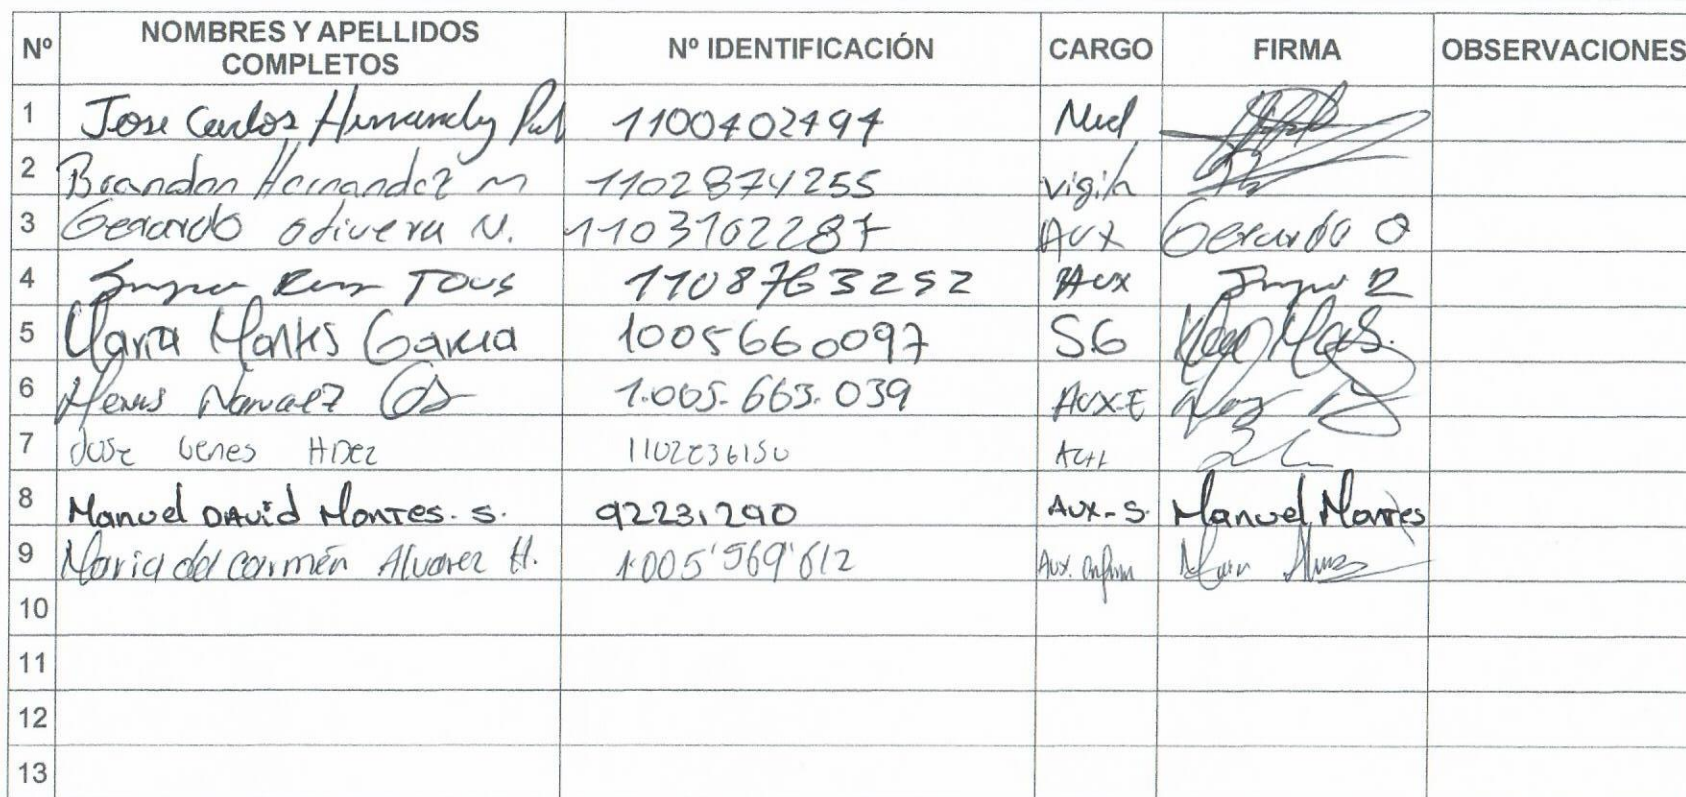 Nº NOMBRES Y APELLIDOS COMPLETOS Nº IDENTIFICACIÓN CARGO FIRMA OBSERVACIONES
1 Jose Carlos 1100402494 Med
2 Brandon Hernandez m 1102874255 vigila
3 Gerardo Olivera N. 1103102287 AUX Gerardo O
4 Tous 1108763252 Aux
5 Maria Montes Garcia 1005660097 S.G
6 Narvaez 1.005.663.039 AUX-E
7 Jose Genes HDez
8 Manuel David Montes. S. 92231290 Aux-S. Manuel Montes
9 Maria del Carmén Alvarez H. 1.005'569'612 Aux.
10
11
12
13